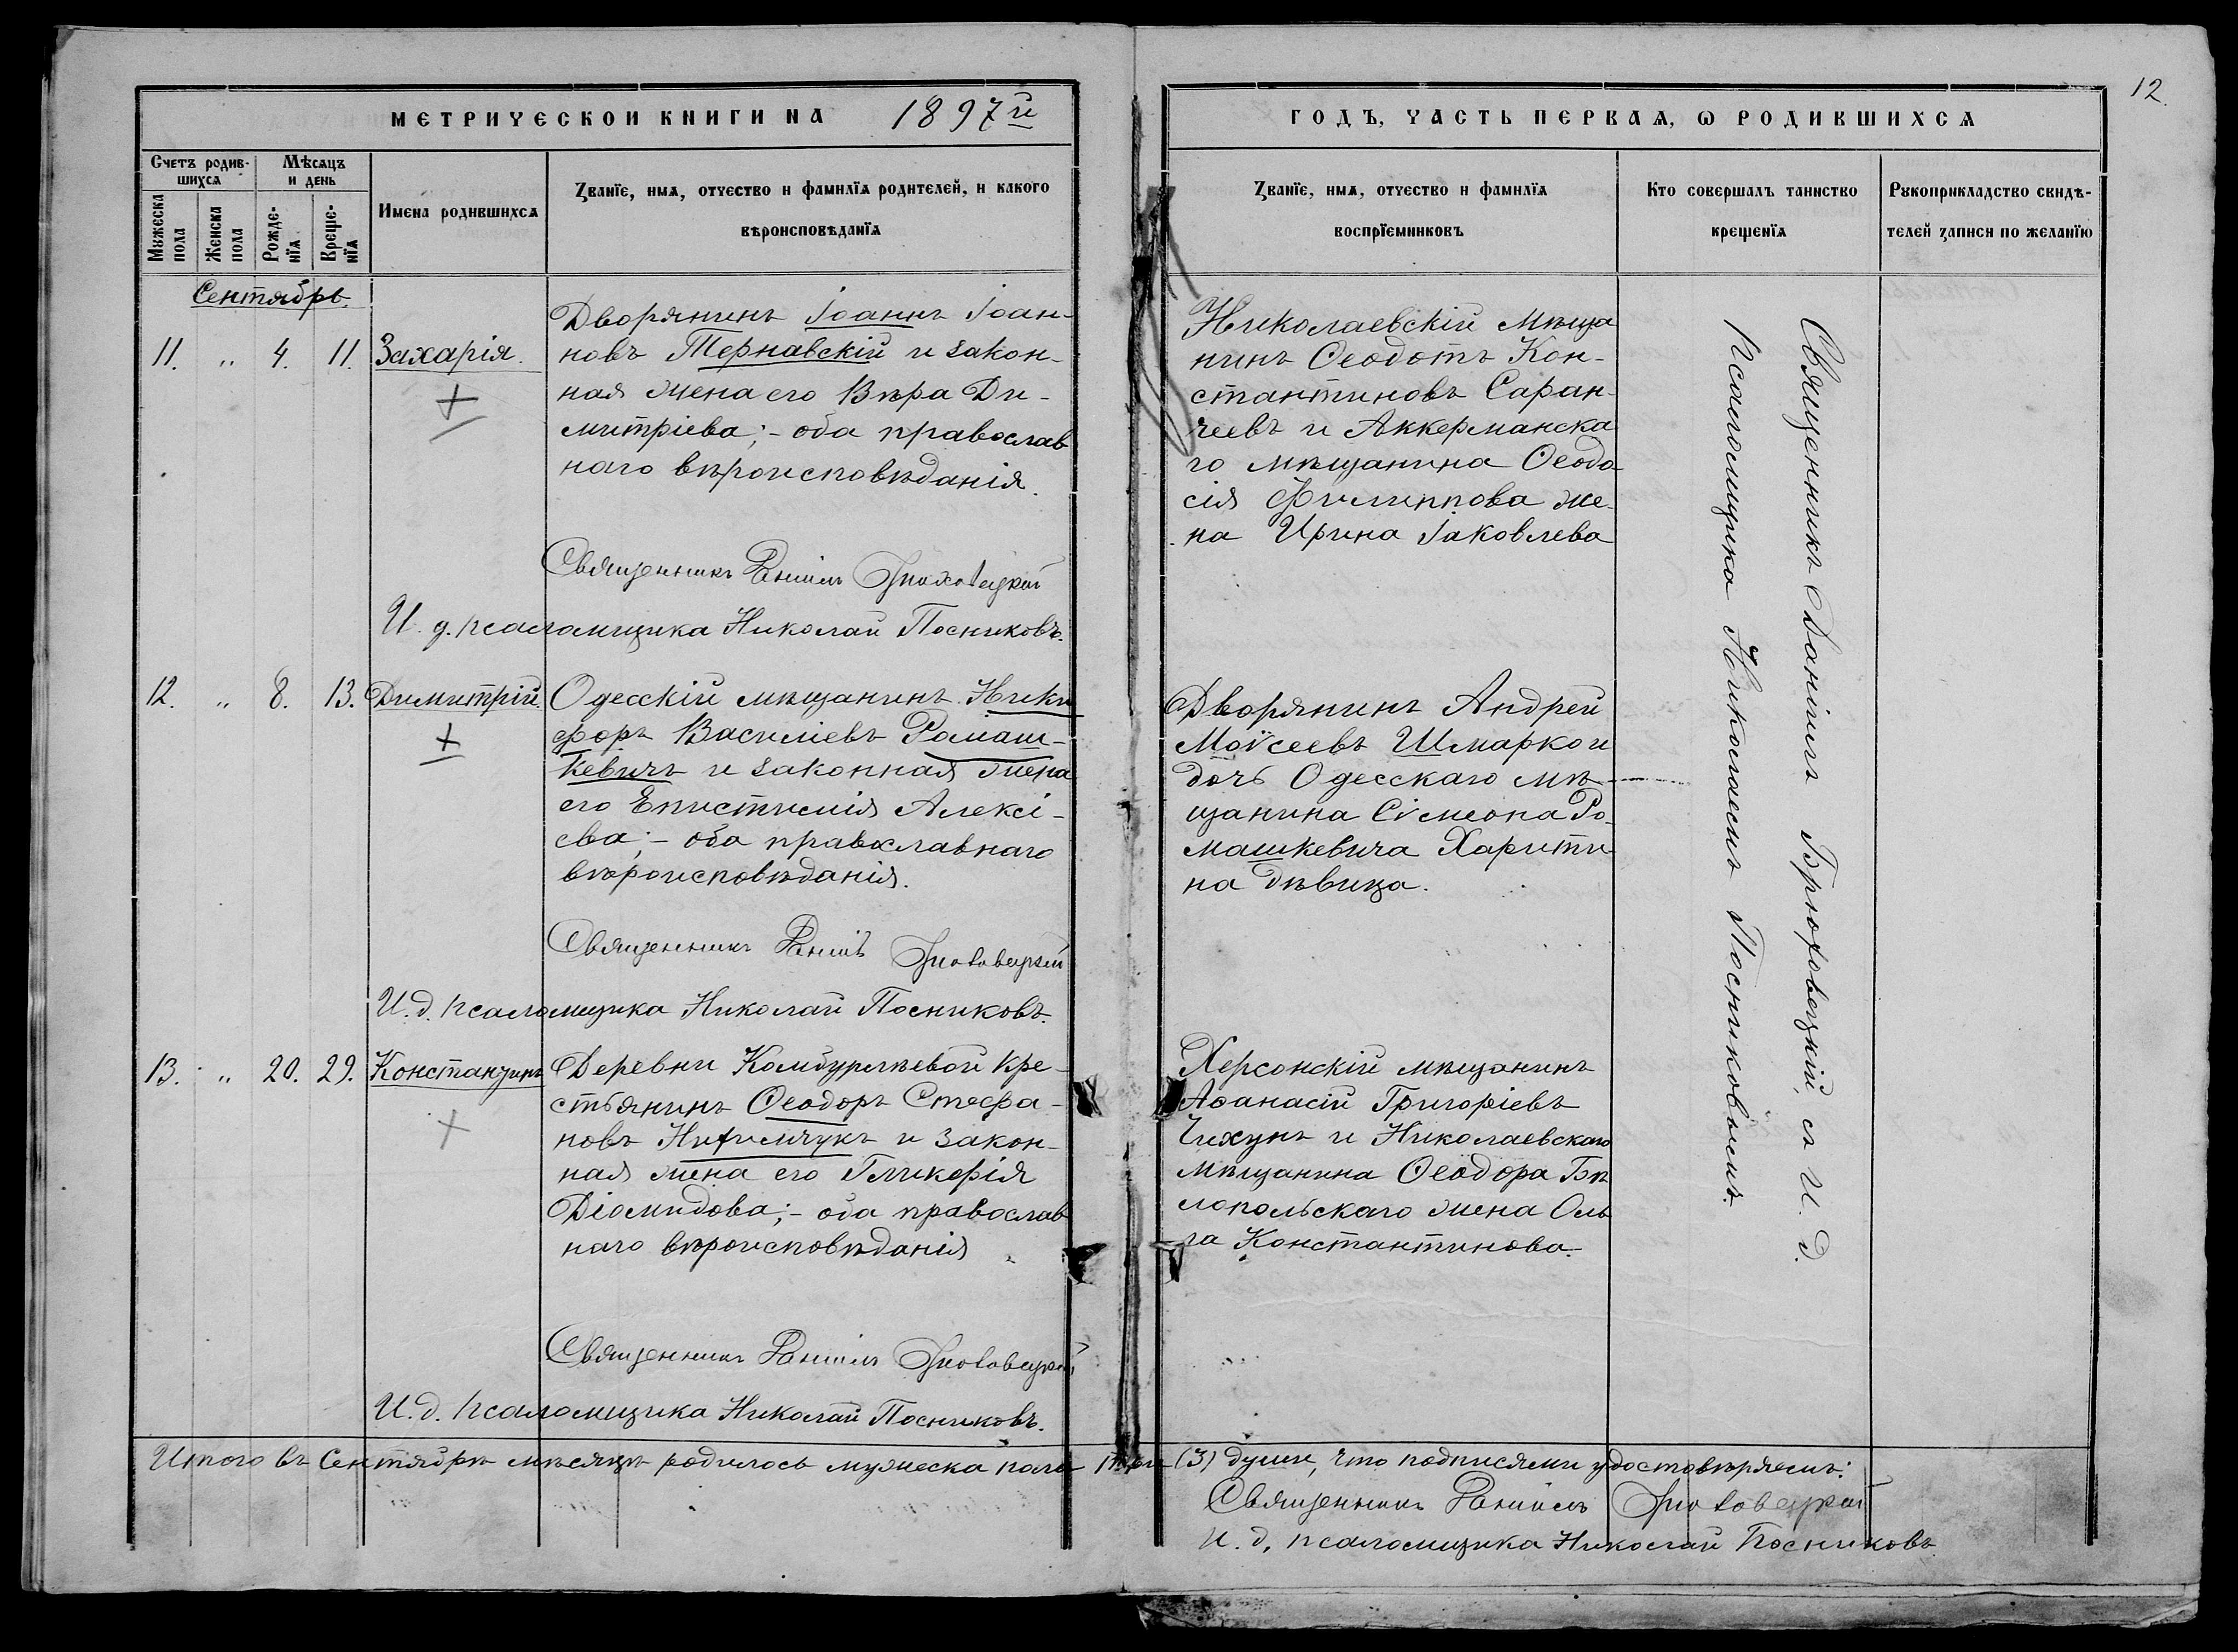 12.
МЕТРИЧЕСКОЙ КНИГИ НА 1897й
ГОДЪ, ЧАСТЬ ПЕРВАѦ, Ѡ РОДИВШИХСѦ
Счетъ родив-
шихсѧ
Мѣсѧцъ
и день
Мужеска
пола
Женска
пола
Рожде-
нїѧ
Креще-
нїѧ
Имена родившихсѧ
Званїе, имѧ, отчество и фамилїѧ родителей, и какого
вѣроисповѣданїѧ
Званїе, имѧ, отчество и фамилїѧ
воспрїемниковъ
Кто совершалъ таинство
крещенїѧ
Рукоприкладство свидѣ-
телей записи по желанїю
Сентябрь.
11. „ 4. 11. Захарія.
Дворянинъ Іоаннъ Іоан-
новъ Тернавскій и закон-
ная жена его Вѣра Ди-
митріева; - оба православ
наго вѣроисповѣданія.
Священникъ Даніилъ Брюховецкій
И. д. псаломщика Николай Посниковъ.
Николаевскій мѣща
нинъ Ѳеодотъ Кон-
стантиновъ Саран-
чеевъ и Аккерманска
го мѣщанина Ѳеодо-
сія Филиппова же-
на Ирина Іаковлева
12. „ 8. 13. Димитрій.
Одесскій мѣщанинъ Ники
форъ Василіевъ Ромаш-
кевичъ и законная жена
его Епистимія Алексі-
ева; - оба православнаго
вѣроисповѣданія.
Священникъ Даніилъ Брюховецкій
И. д. псаломщика Николай Посниковъ.
Дворянинъ Андрей
Моѵсеевъ Шмарко и
дочь Одесскаго мѣ-
щанина Сѵмеона Ро-
машкевича Харити
на дѣвица.
13. „ 20. 29. Константинъ
Деревни Комбурлѣевой кре-
стьянинъ Ѳеодоръ Стефа-
новъ и закон-
ная жена его Гликерія
Діомидова; - оба православ
наго вѣроисповѣданія
Священникъ Даніилъ Брюховецкій
И. д. псаломщика Николай Посниковъ.
Херсонскій мѣщанинъ
Аѳанасій Григоріевъ
Чихунъ и Николаевскаго
мѣщанина Ѳеодора Бѣ
лопольскаго жена Оль
га Константинова.
Священникъ Даніилъ Брюховецкій, съ И. д.
Псаломщика Николаемъ Посниковымъ.
Итого въ Сентябрѣ мѣсяцѣ родилось мужеска пола три (3) души, что подписями удостовѣряемъ:
Священникъ Даніилъ Брюховецкій
И. д. псаломщика Николай Посниковъ